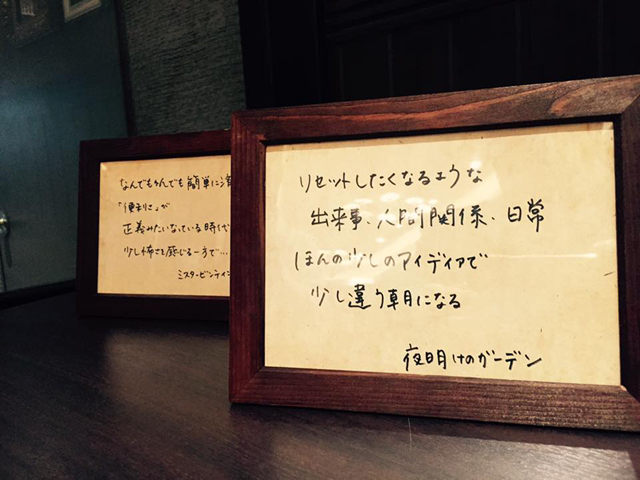 なんでもかんでも簡単に済
「便利さ」が
正義みたいなっている時代
少し怖さを感じる一方で…
ミスタ・ビンティ
リセットしたくなるような
出来事、人間関係、日常
ほんの少しのアイディアで
少し違う朝になる
夜明けのガーデン